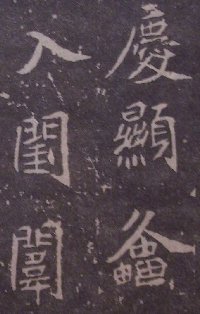 慶顯
入閨闈